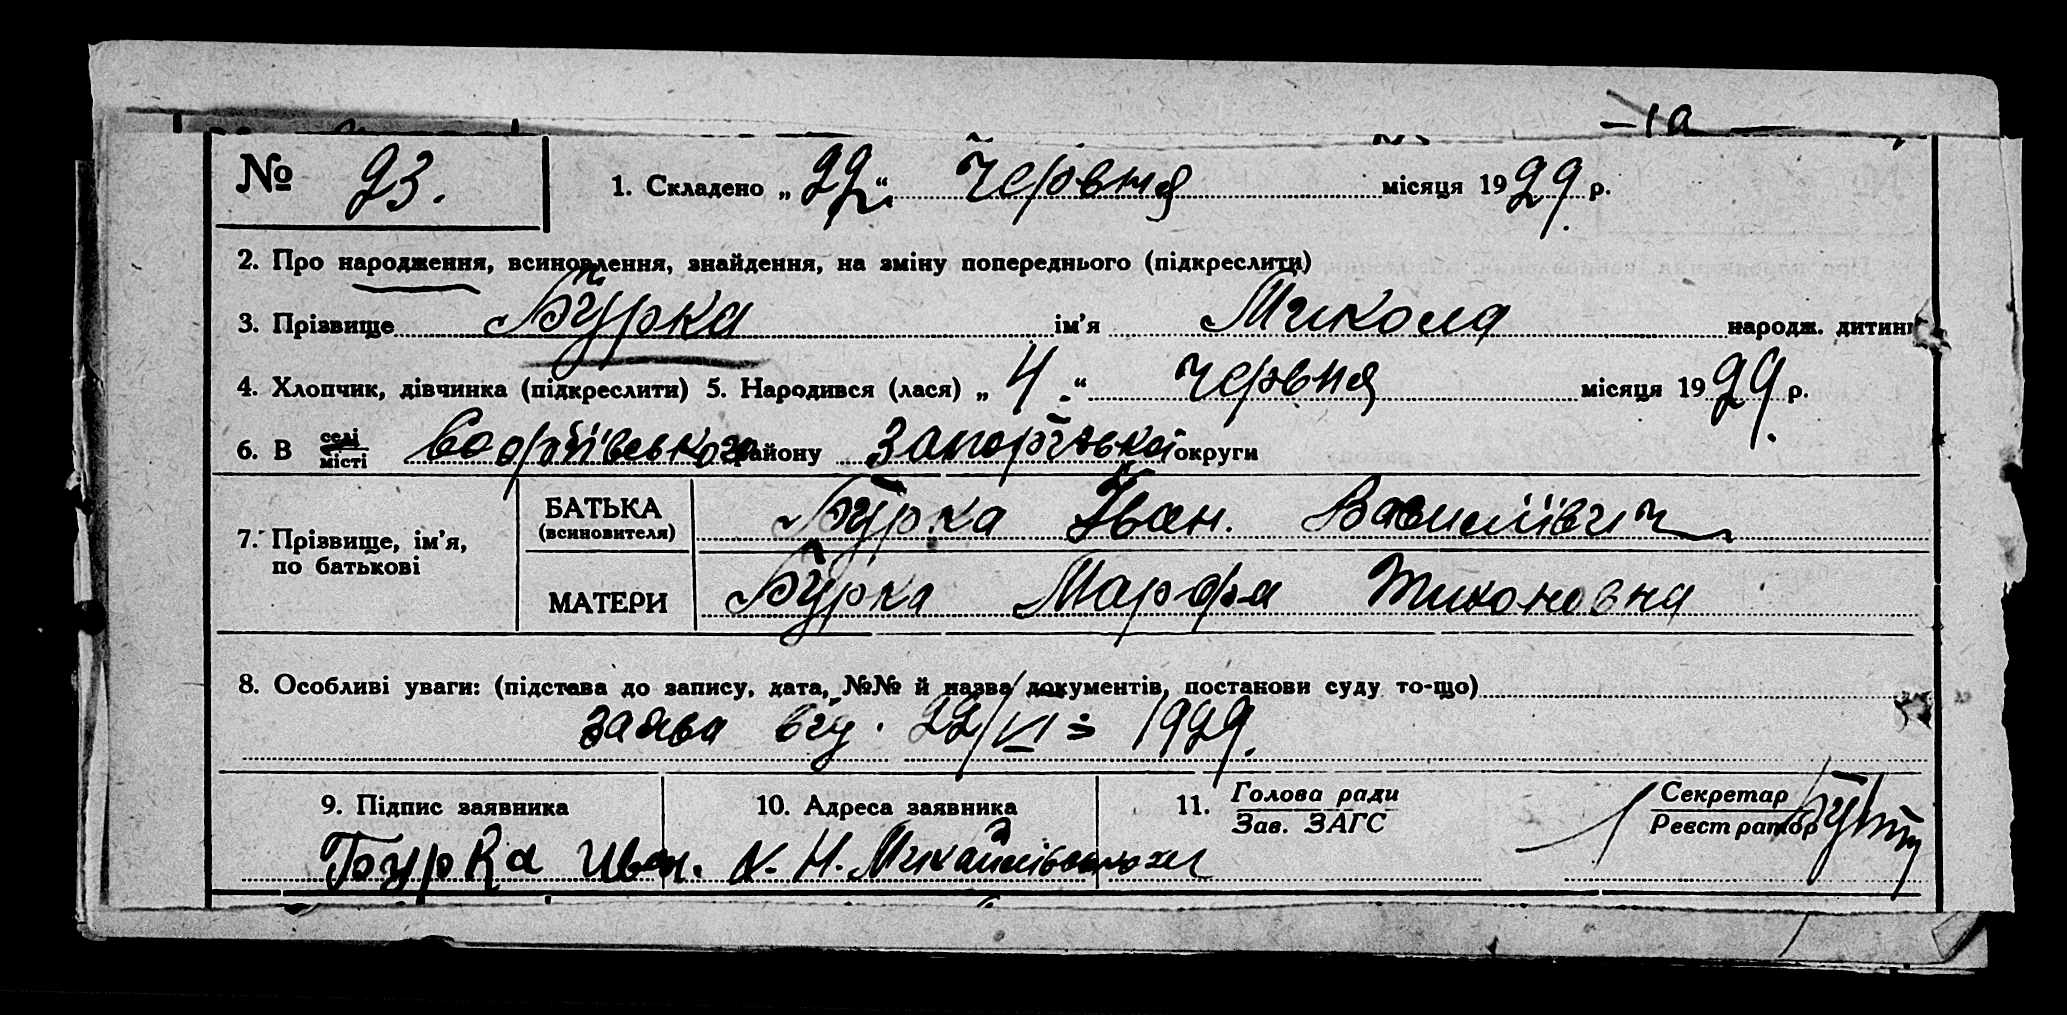 – 1а –
№ 23. 1. Складено „ 22 “ Червня місяця 1929 р.
2. Про народження, всиновлення, знайдення, на зміну попереднього (підкреслити)
3. Прізвище Бурка ім’я Микола народж. дитини
4. Хлопчик, дівчинка (підкреслити) 5. Народився (лася) „ 4 “ червня місяця 1929 р.
6. В селі
місті району округи
7. Прізвище, ім’я, по батькові
БАТЬКА (всиновителя) Бурка Іван. Василівич
МАТЕРИ Бурка Марфа Тихоновна
8. Особливі уваги: (підстава до запису, дата, №№ й назва документів, постанови суду то-що)
заява від. 22/VI = 1929.
9. Підпис заявника 10. Адреса заявника 11. Голова ради
Зав. ЗАГС Секретар
Реєстратор
Бурка Иван. Х. Н.